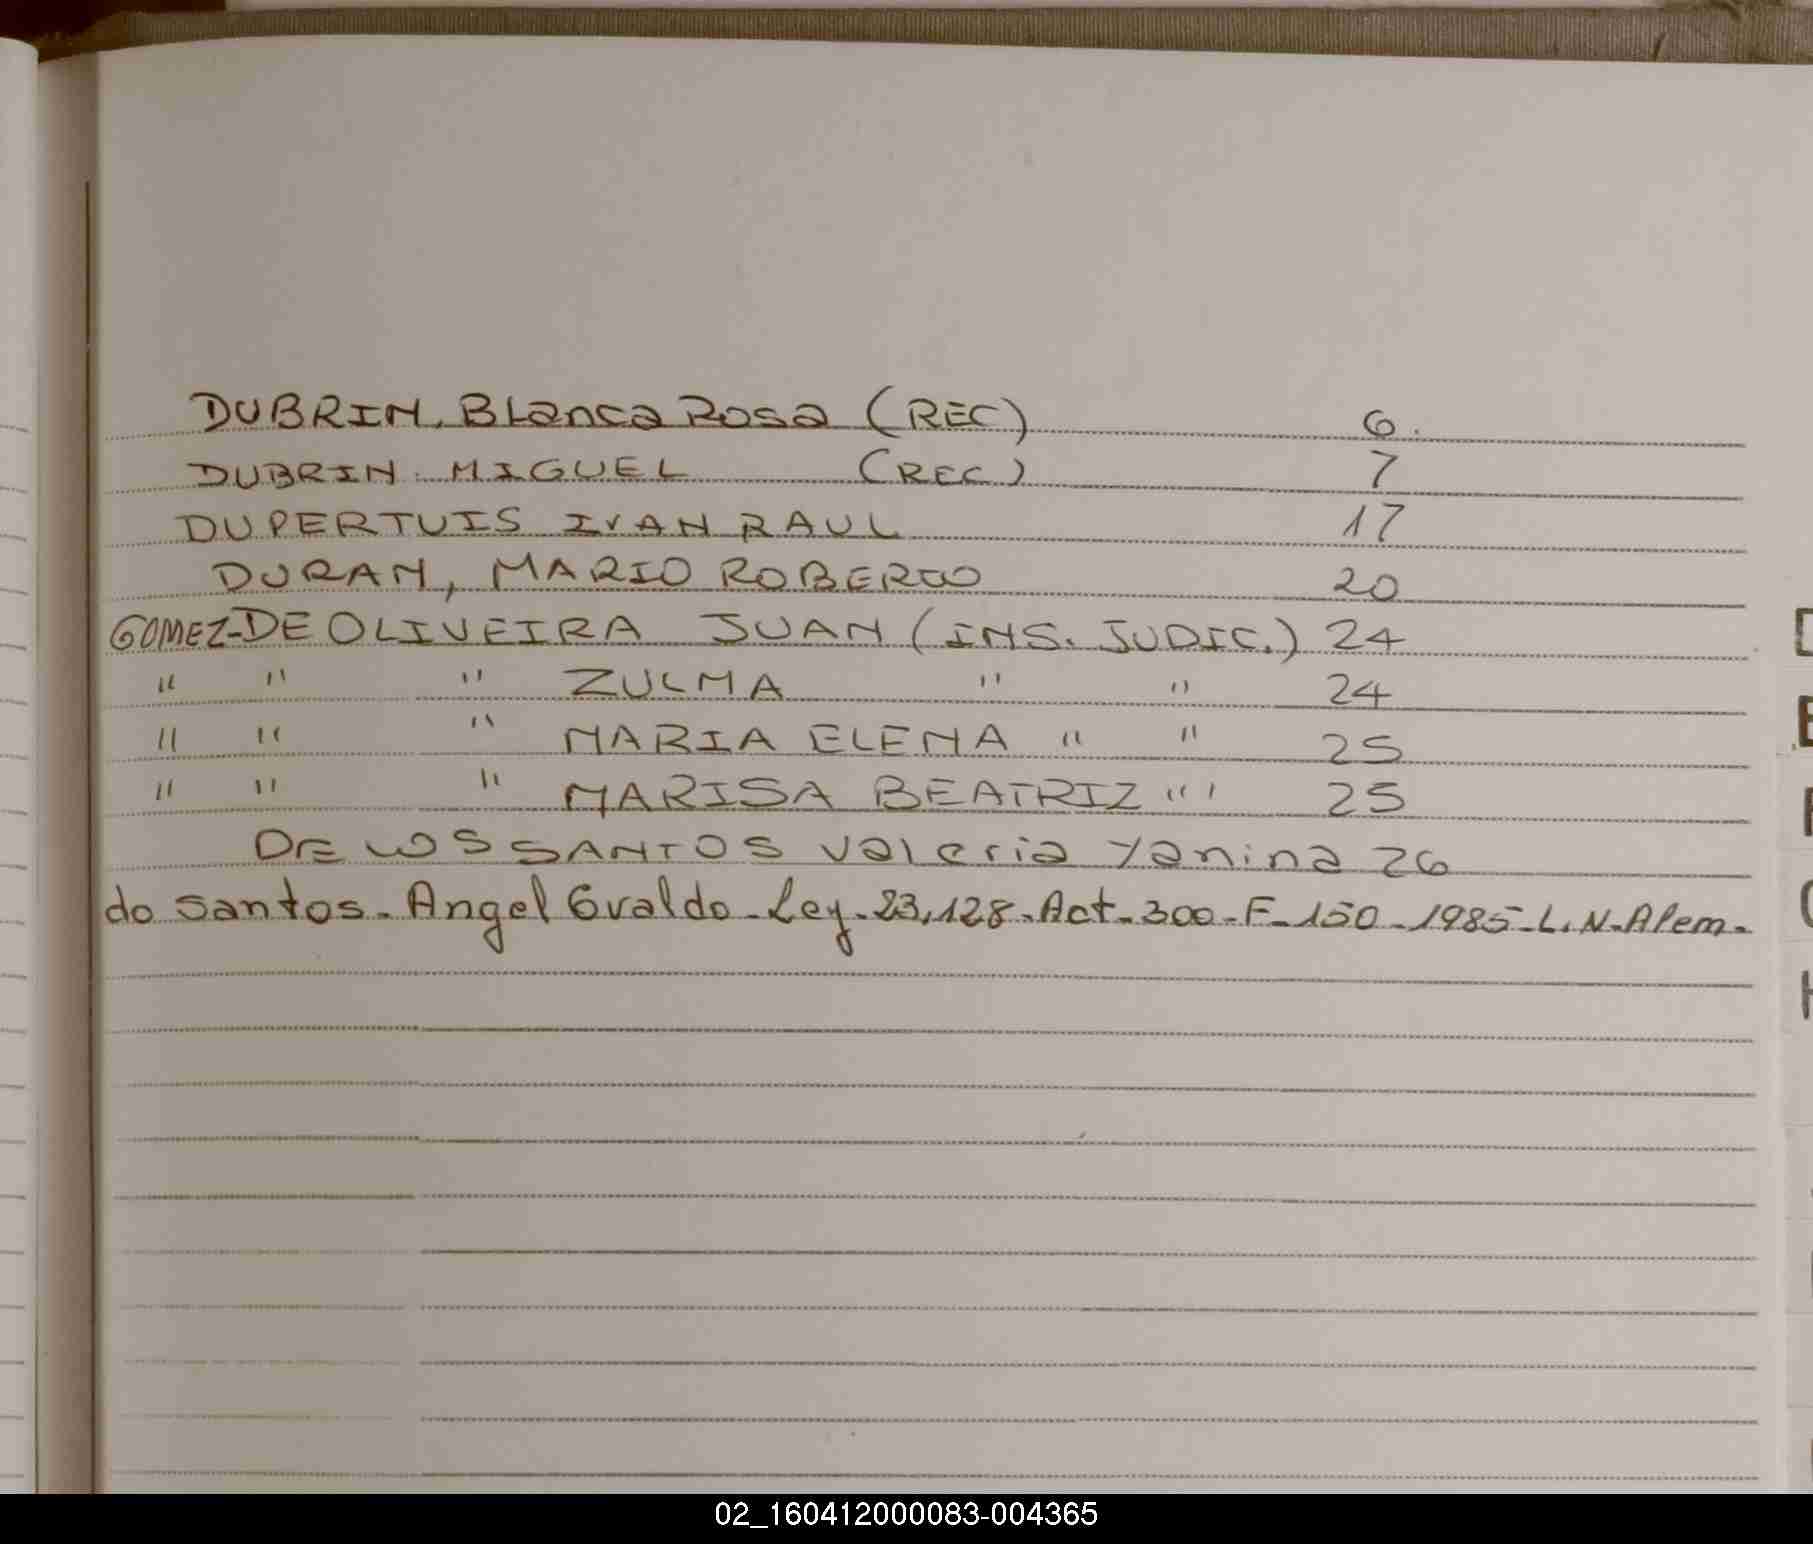 DUBRIN, Blanca Rosa (REC) 6.
DUBRIN MIGUEL (REC) 7
DUPERTUIS IVAN RAUL 17
DURAN, MARIO ROBERTO 20
GOMEZ-DE OLIVEIRA JUAN (INS. JUDIC.) 24
" " " ZULMA " " 24
" " " MARIA ELENA " " 25
" " " MARISA BEATRIZ " " 25
DE LOS SANTOS Valeria Yanina 26
do santos. Angel Evaldo. Ley. 23.128. Act. 300. F. 150. 1985. L. N. Alem.
D
E
F
G
H
02_160412000083-004365